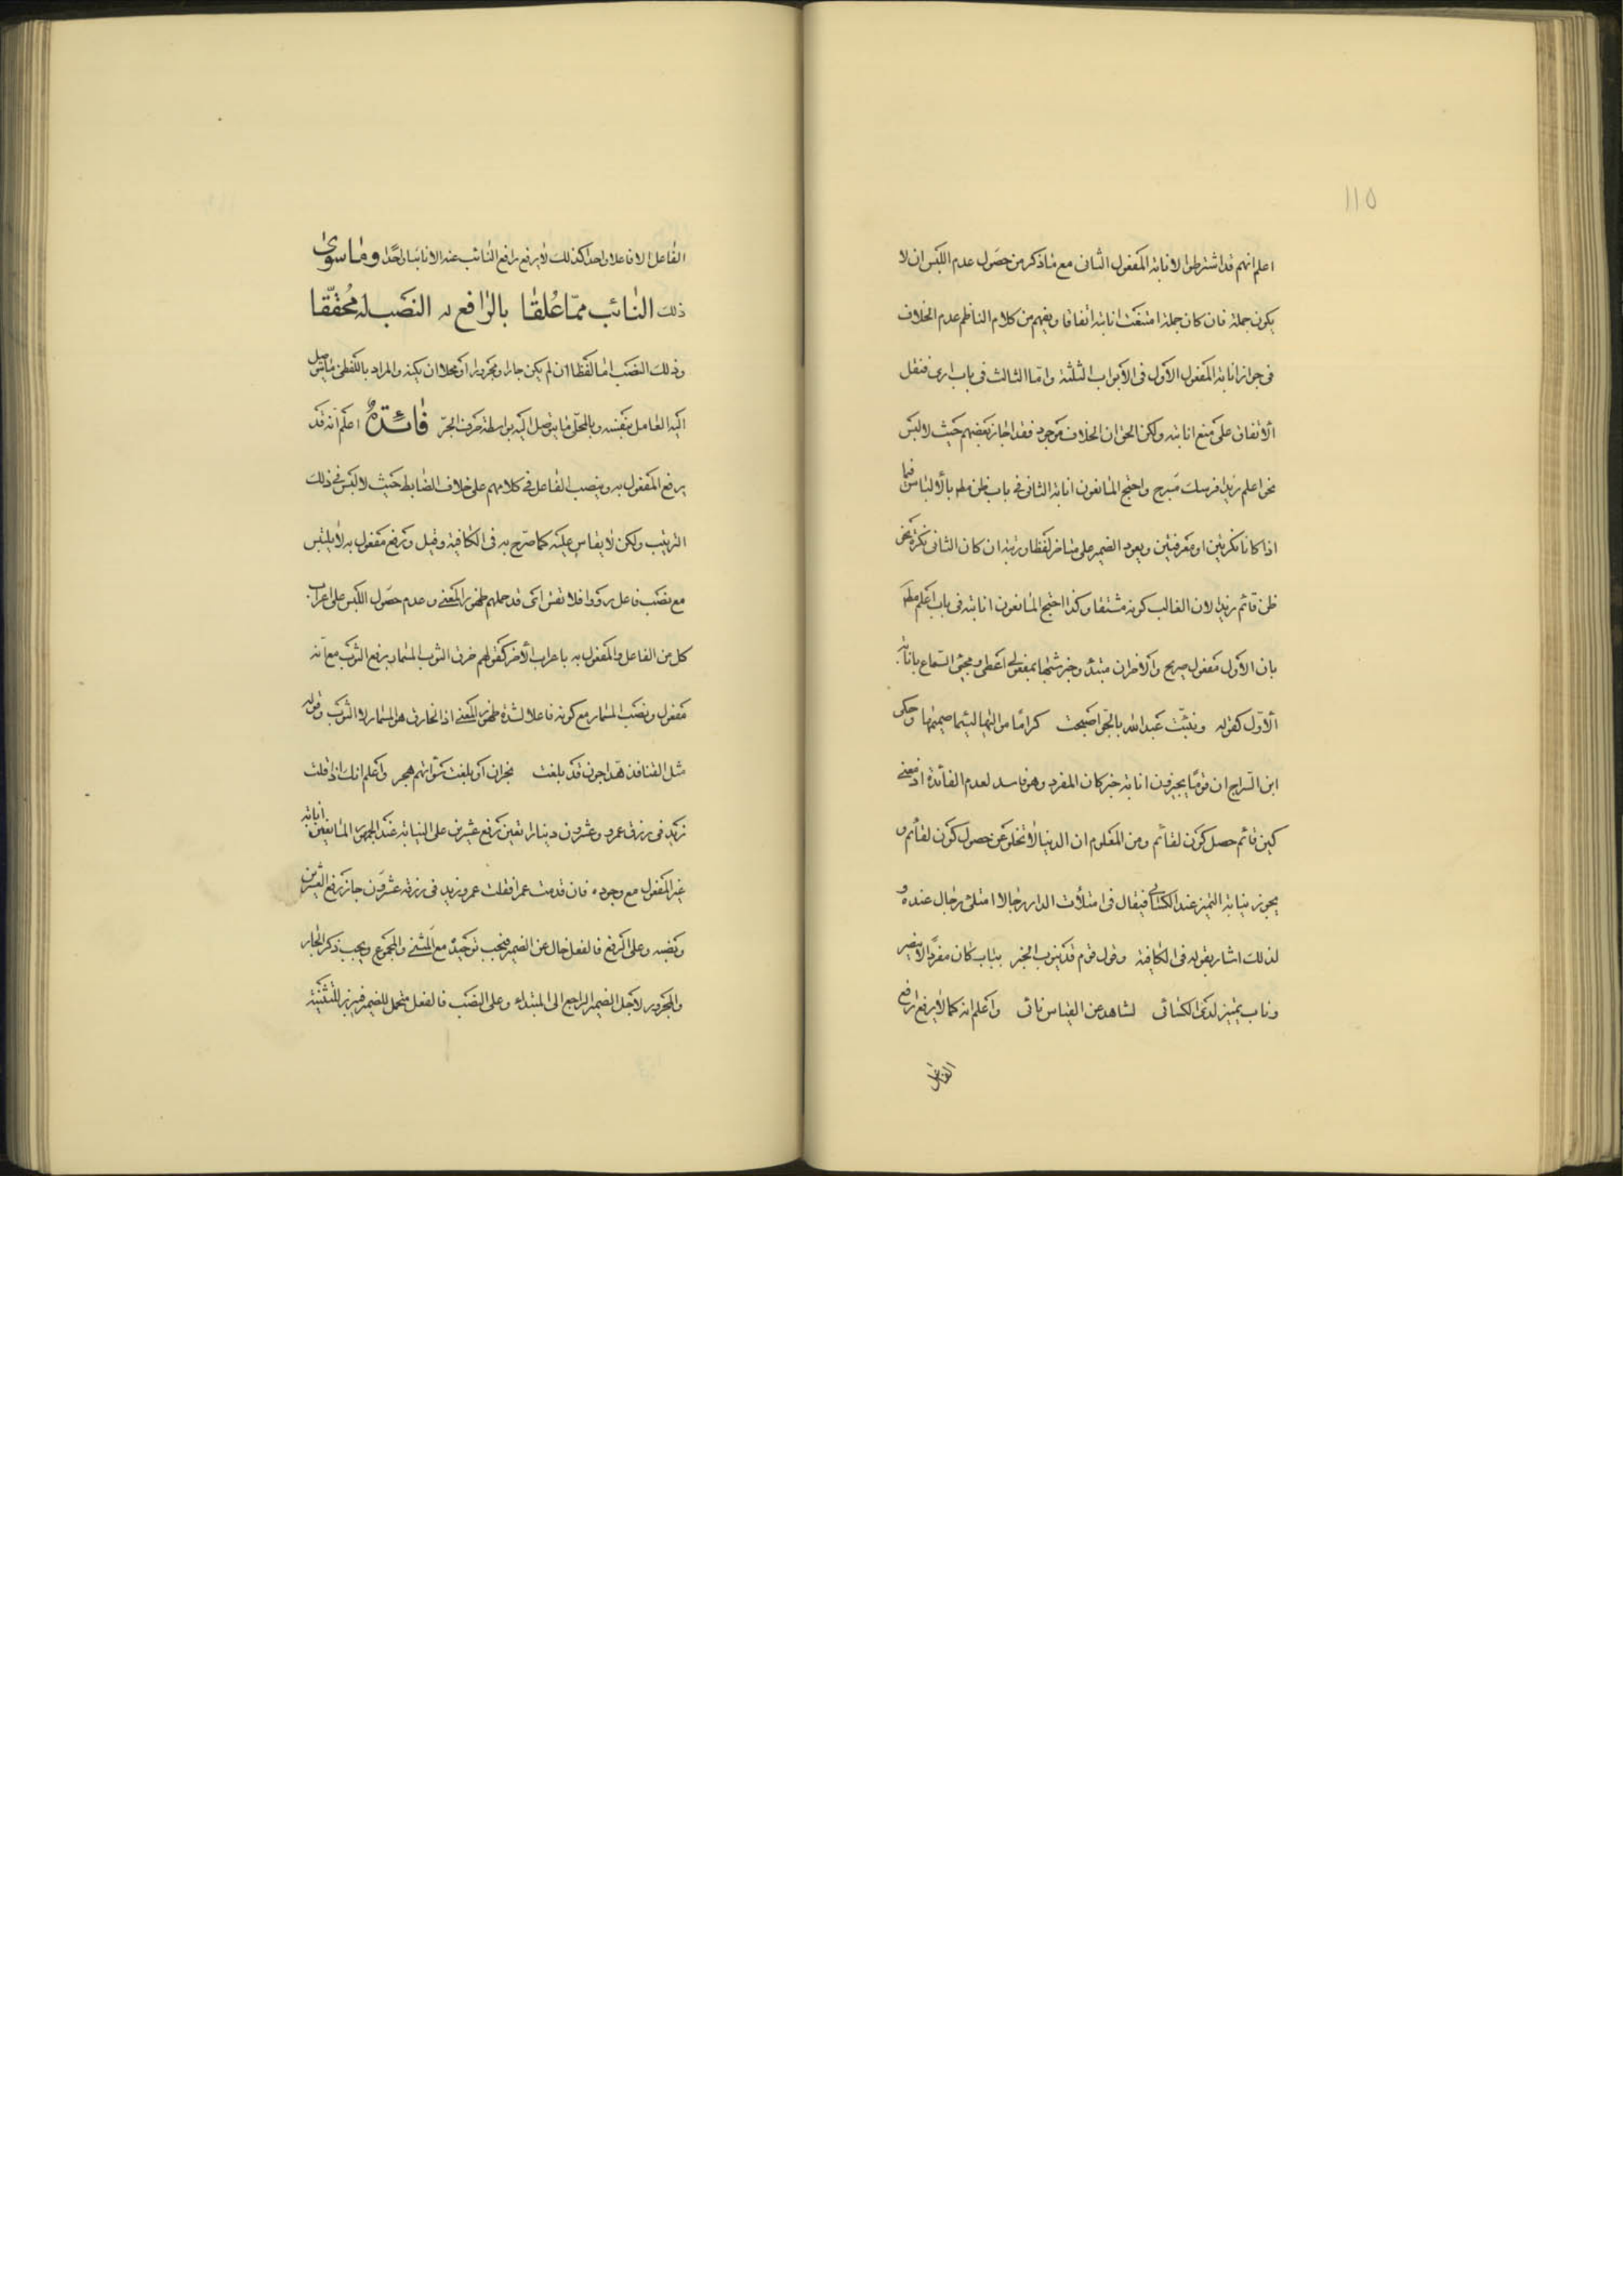 ١١٥
اعلم انهم قد اشترطوا لانابة المفعول الثاني مع ما ذكر من حصول عدم اللبس ان لا
يكون جملة فان كان جملة امتنعت انابته اتفاقا ويفهم من كلام الناظم عدم الخلاف
في جواز انابة المفعول الاول في الابواب الثلثة واما الثالث في باب ارى فنقل
الاتفاق على منع انابته ولكن الحق ان الخلاف موجود فقد اجاز بعضهم حيث لا لبس
نحو اعلم زيدا فرسك مسرج واحتج المانعون انابة الثاني في باب ظن مطم بالالباس فيما
اذا كانا نكرتين او معرفتين وبعود الضمير على متاخر لفظا ورتبة ان كان الثاني نكرة نحو
ظن قائم زيدا لان الغالب كونه مشتقا وكذا احتج المانعون انابته في باب اعلم مطم
بان الاول مفعول صريح والاخران مبتدأ وخبر شبها بمفعولي اعطى ومجئ السماع بانابة
الاول كقوله ونبئت عبد الله بالجو اصبحت كراما مواليها لئيما صميمها وحكى
ابن السراج ان قوما يجيزون انابة خبر كان المفرد وهو فاسد لعدم الفائدة اذ معنى
كين قائم حصل كون لقائم ومن المعلوم ان الدنيا لا تخلو عن حصول كون لقائم و
يجوز نيابة التميز عند الكسائي فيقال في امتلأت الدار رجالا امتلئ رجال عنده و
لذلك اشار بقوله في الكافية وقول قوم قد ينوب الخبر بباب كان مفردا لا ينصر
وناب تميز لدى الكسائي لشاهد عن القياس نائي واعلم انه كما لا يرفع رافع
الفاعل
الفاعل الا فاعلا واحدا كذلك لا يرفع رافع النائب عنه الا نائبا واحدا وما سوى
ذلك النائب مما علقا بالرافع له النصب له محققا
وذلك النصب اما لفظا ان لم يكن جارا ومجرورا او محلا ان يكنه والمراد باللفظي ما يتوصل
اليه العامل بنفسه وبالمحلي ما يتوصل اليه بواسطة حرف الجر فائدة اعلم انه قد
يرفع المفعول به وينصب الفاعل في كلامهم على خلاف الضابط حيث لا لبس في ذلك
الترتيب ولكن لا يقاس عليه كما صرح به في الكافية وقيل ورفع مفعول به لا يلتبس
مع نصب فاعل رووا فلا تقس اي قد حملهم ظهور المعنى وعدم حصول اللبس على اعراب
كل من الفاعل والمفعول به باعراب الاخر كقولهم خرق الثوب المسمار برفع الثوب مع انه
مفعول ونصب المسمار مع كونه فاعلا لشدة ظهور المعنى اذ الخارق هو المسمار لا الثوب وقوله
مثل القنافذ هداجون قد بلغت نجران او بلغت سوآتهم هجر واعلم انك اذا قلت
زيد في رزق عمرو وعشرون دينارا تعين رفع عشرين على النيابة عند الجمهور المانعين انابة
غير المفعول مع وجوده فان قدمت عمرا فقلت عمرو زيد في رزقه عشرون جاز رفع العشرين
ونصبه وعلى الرفع فالفعل خال عن الضمير فيجب توحيده مع المثنى والمجموع ويجب ذكر الجار
والمجرور لاجل الضمير الراجع الى المبتداء وعلى النصب فالفعل متحمل للضمير فيبرز للتثنية